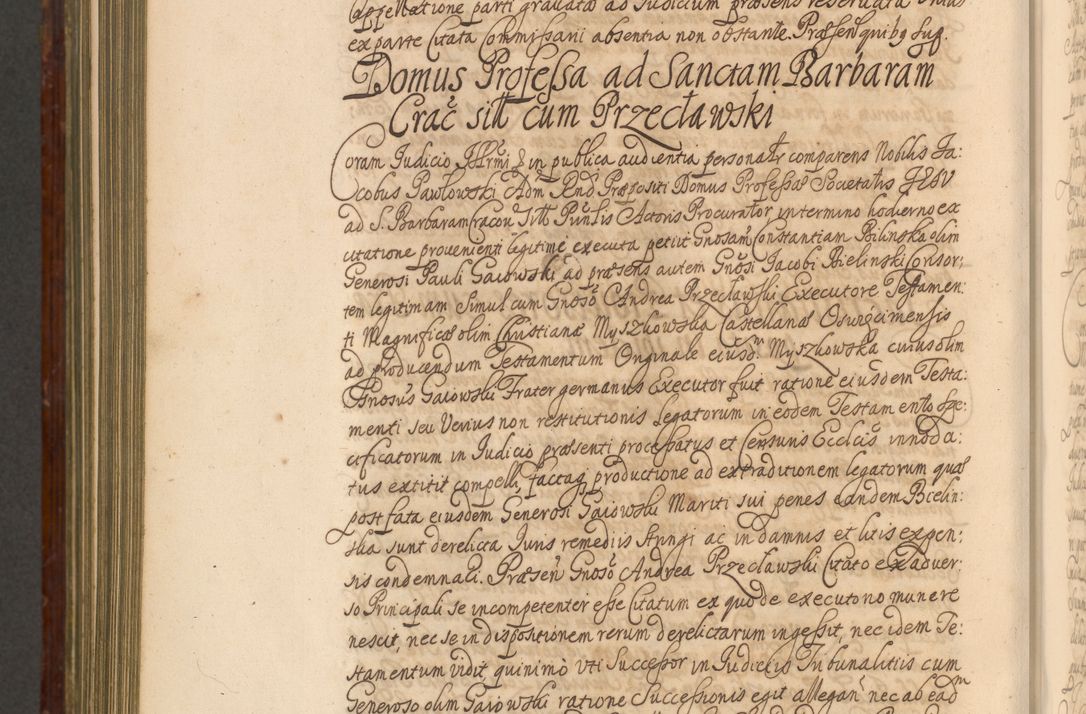 Appellatione parti gravatæ ad Judicium præsens reservata
ex parte Citata Commissarii absentia non obstante. Præsen quibg suf.
Domus Professa ad Sanctam Barbaram
Crac sitt cum Przecławski
Coram Judicio Illrmi & in publica audientia personalr comparens Nobilis Ja:
cobus Pawłowski Adm Rnd Præpositi Domus Professæ Societatis JESV
ad S. Barbaram Cracou Sitt Pnntis Actoris Procurator in termino hodierno ex
citatione provenienti legitime executa petiit Gnosam Constantiam Bilinska olim
Generosi Pauli Gaiowski ad præsens autem Gnosi Jacobi Bielinski Consor:
tem legitimam Simul cum Gnoso Andrea Przecławski Executore Testamen:
ti Magnificæ olim Christianæ Myszkowska Castellanæ Oswięcimensis
ad producendum Testamentum Originale eiusdm Myszkowska cuius olim
Gnosus Gaiowski Frater germanus Executor fuit ratione eiusdem Testa:
menti seu Verius non restitutionis legatorum in eodem Testamento Spe:
cificatorum in Judicio præsenti processatus et Censuris Ecclcis innoda:
tus extitit compelli factaq productione ad extraditionem legatorum quæ
post fata eiusdem Generosi Gaiowski Mariti sui penes eandem Bielin:
ska sunt derelicta Juris remediis stringi ac in damnis et litis expen:
sis condemnali. Præsen Gnoso Andrea Przecławski Citato ex adver:
so Principali se incompetenter esse Citatum ex quo de executono munere
nescit, nec se in dispositionem rerum derelictarum ingessit, nec idem Te:
stamentum vidit quinimò vti Successor in Judiciis Tribunalitiis cum
Generoso olim Gaiowski ratione Successionis egit allegan nec ab eadm